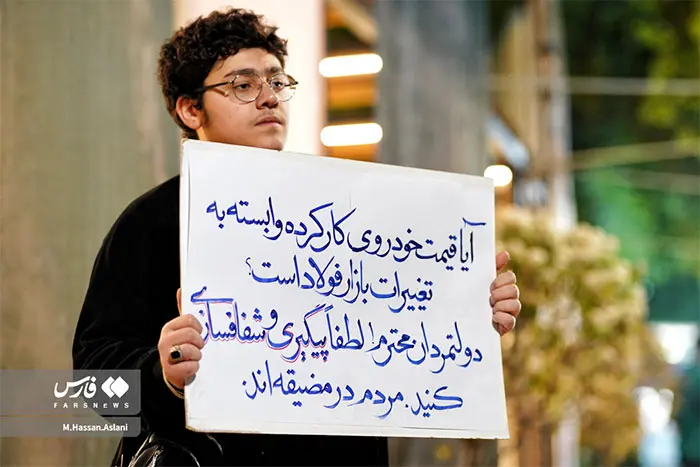 آیا قیمت خودروی کارکرده وابسته به
تغییرات بازار فولاد است؟
دولتمردان محترم! لطفاً پیگیری و شفافسازی
کنید. مردم در مضیقه‌اند.
فارس
FARSNEWS
M.Hassan.Aslani